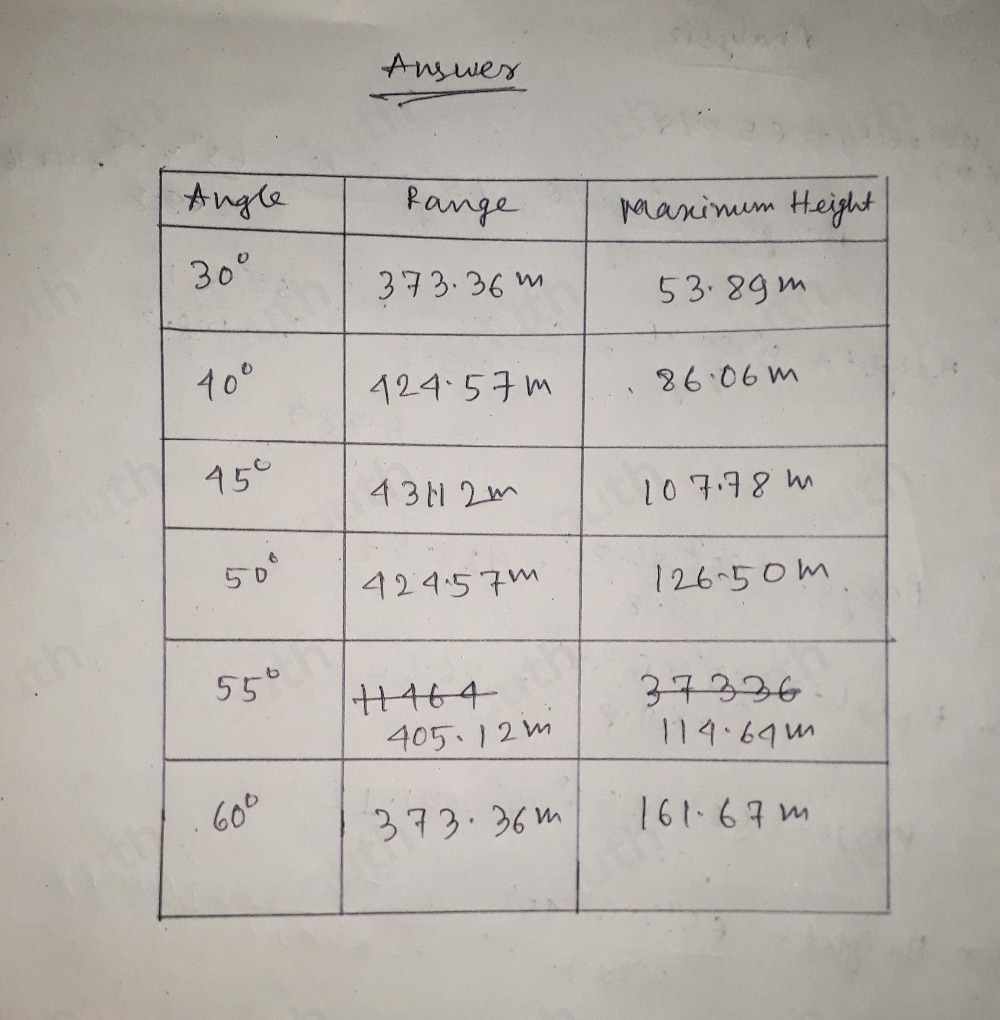 Answer
Angle Range Maximum Height
30° 373.36 m 53.89 m
40° 424.57 m 86.06 m
45° 431.12 m 107.78 m
50° 424.57 m 126.50 m
55° 11464 37336
405.12 m 114.64 m
60° 373.36 m 161.67 m